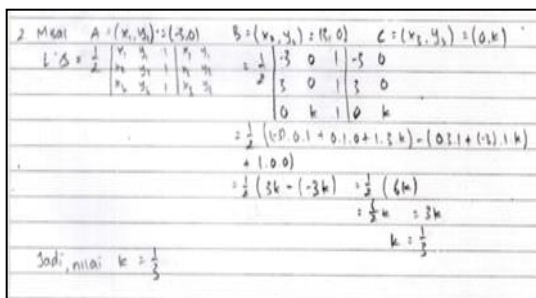 2. Misal A = (x₁, y₁) = (-3,0) B = (x₂, y₂) = (3, 0) C = (x₃, y₃) = (0,k)
L Δ = 1/2 | x₁ y₁ 1 | x₁ y₁ = 1/2 | -3 0 1 | -3 0
x₂ y₂ 1 | x₂ y₂ 3 0 1 | 3 0
x₃ y₃ 1 | x₃ y₃ 0 k 1 | 0 k
= 1/2 ((-3).0.1 + 0.1.0 + 1.3.k) - (0.3.1 + (-3).1.k)
+ 1.0.0)
= 1/2 (3k - (-3k) = 1/2 (6k)
= 6/2 k = 3k
k = 1/3
Jadi, nilai k = 1/3